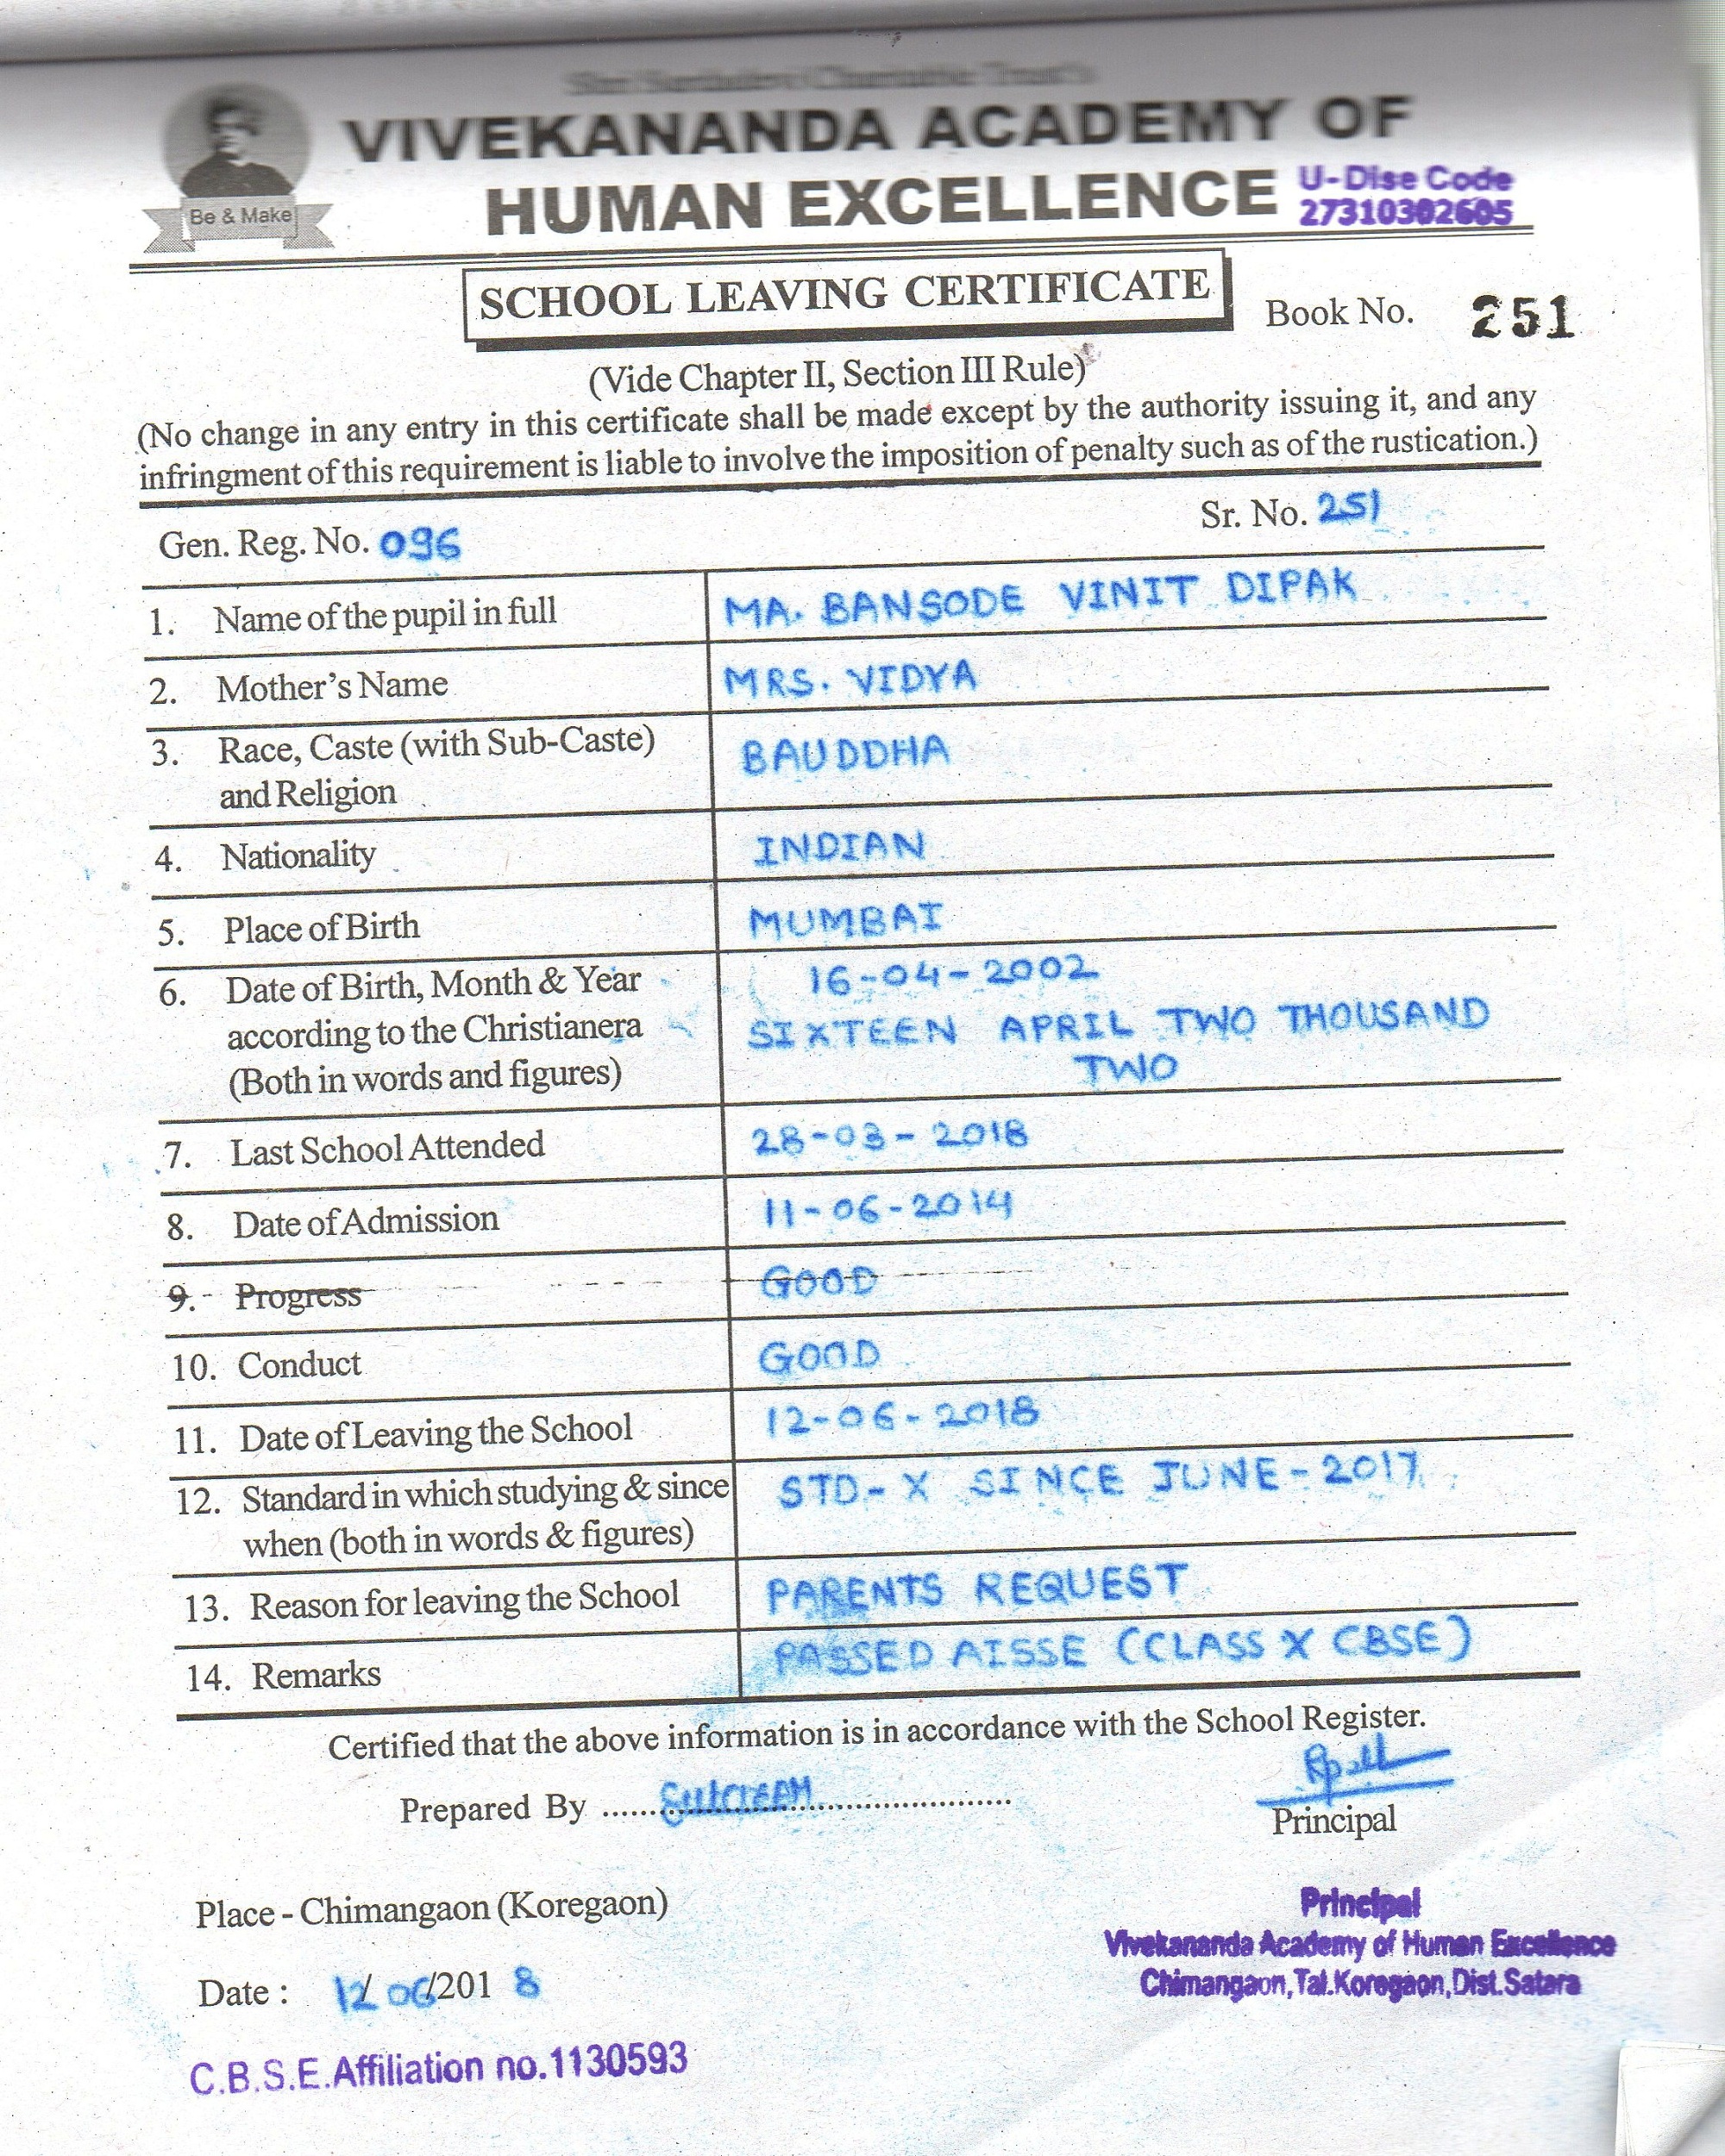 VIVEKANANDA ACADEMY OF
HUMAN EXCELLENCE
U-Dise Code
27310302605
Be & Make
SCHOOL LEAVING CERTIFICATE
Book No. 251
(Vide Chapter II, Section III Rule)
(No change in any entry in this certificate shall be made except by the authority issuing it, and any
infringment of this requirement is liable to involve the imposition of penalty such as of the rustication.)
Gen. Reg. No. 096 Sr. No. 251
1. Name of the pupil in full MA. BANSODE VINIT DIPAK
2. Mother's Name MRS. VIDYA
3. Race, Caste (with Sub-Caste) BAUDDHA
and Religion
4. Nationality INDIAN
5. Place of Birth MUMBAI
6. Date of Birth, Month & Year 16-04-2002
according to the Christianera SIXTEEN APRIL TWO THOUSAND
(Both in words and figures) TWO
7. Last School Attended 28-03-2018
8. Date of Admission 11-06-2014
9. Progress GOOD
10. Conduct GOOD
11. Date of Leaving the School 12-06-2018
12. Standard in which studying & since STD-X SINCE JUNE-2017
when (both in words & figures)
13. Reason for leaving the School PARENTS REQUEST
14. Remarks PASSED AISSE (CLASS X CBSE)
Certified that the above information is in accordance with the School Register.
Prepared By
Principal
Place - Chimangaon (Koregaon)
Principal
Vivekananda Academy of Human Excellence
Chimangaon, Tal.Koregaon, Dist.Satara
Date : 12/06/2018
C.B.S.E.Affiliation no.1130593